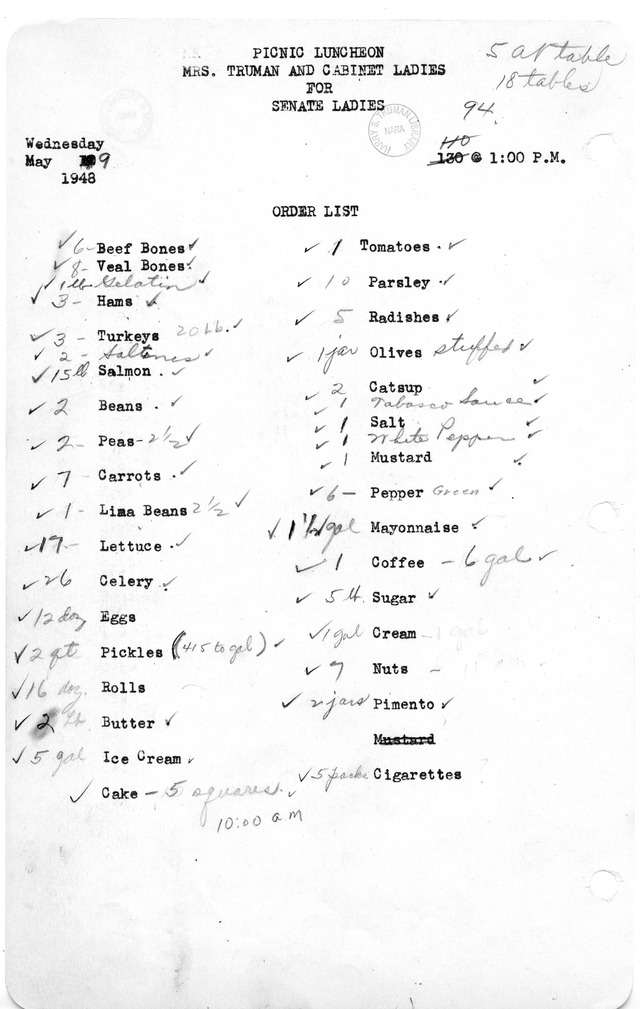 PICNIC LUNCHEON
MRS. TRUMAN AND CABINET LADIES
FOR
SENATE LADIES
5 at table
18 tables
94
110
130 @ 1:00 P.M.
HARRY S. TRUMAN LIBRARY
NARA
Wednesday
May 9
1948
ORDER LIST
✓ 6- Beef Bones ✓
✓ 8- Veal Bones ✓
✓ 1 lb Gelatin ✓
✓ 3- Hams ✓
✓ 3- Turkeys 20 lb. ✓
✓ 2- Saltines ✓
✓ 15 lb Salmon . ✓
✓ 2 Beans . ✓
✓ 2- Peas-2½ ✓
✓ 7 Carrots . ✓
✓ 1- Lima Beans 2½ ✓
✓ 17- Lettuce . ✓
✓ 26 Celery ✓
✓ 12 doz Eggs
✓ 2 qts Pickles (415 to gal) ✓
✓ 16 doz. Rolls
✓ 2 lb Butter ✓
✓ 5 gal Ice Cream ✓
✓ Cake - 5 squares. ✓
10:00 a.m
✓ 1 Tomatoes . ✓
✓ 10 Parsley . ✓
✓ 5 Radishes ✓
✓ 1 jar Olives stuffed ✓
✓ 2 Catsup ✓
✓ 1 Tabasco Sauce ✓
✓ 1 Salt ✓
✓ 1 White Pepper ✓
✓ 1 Mustard ✓
✓ 6- Pepper Green ✓
✓ 1½ gal Mayonnaise ✓
✓ 1 Coffee - 6 gal ✓
✓ 5 lb Sugar ✓
✓ 1 gal Cream - 1 gal
✓ 7 Nuts -
✓ 2 jars Pimento ✓
Mustard
✓ 5 packs Cigarettes